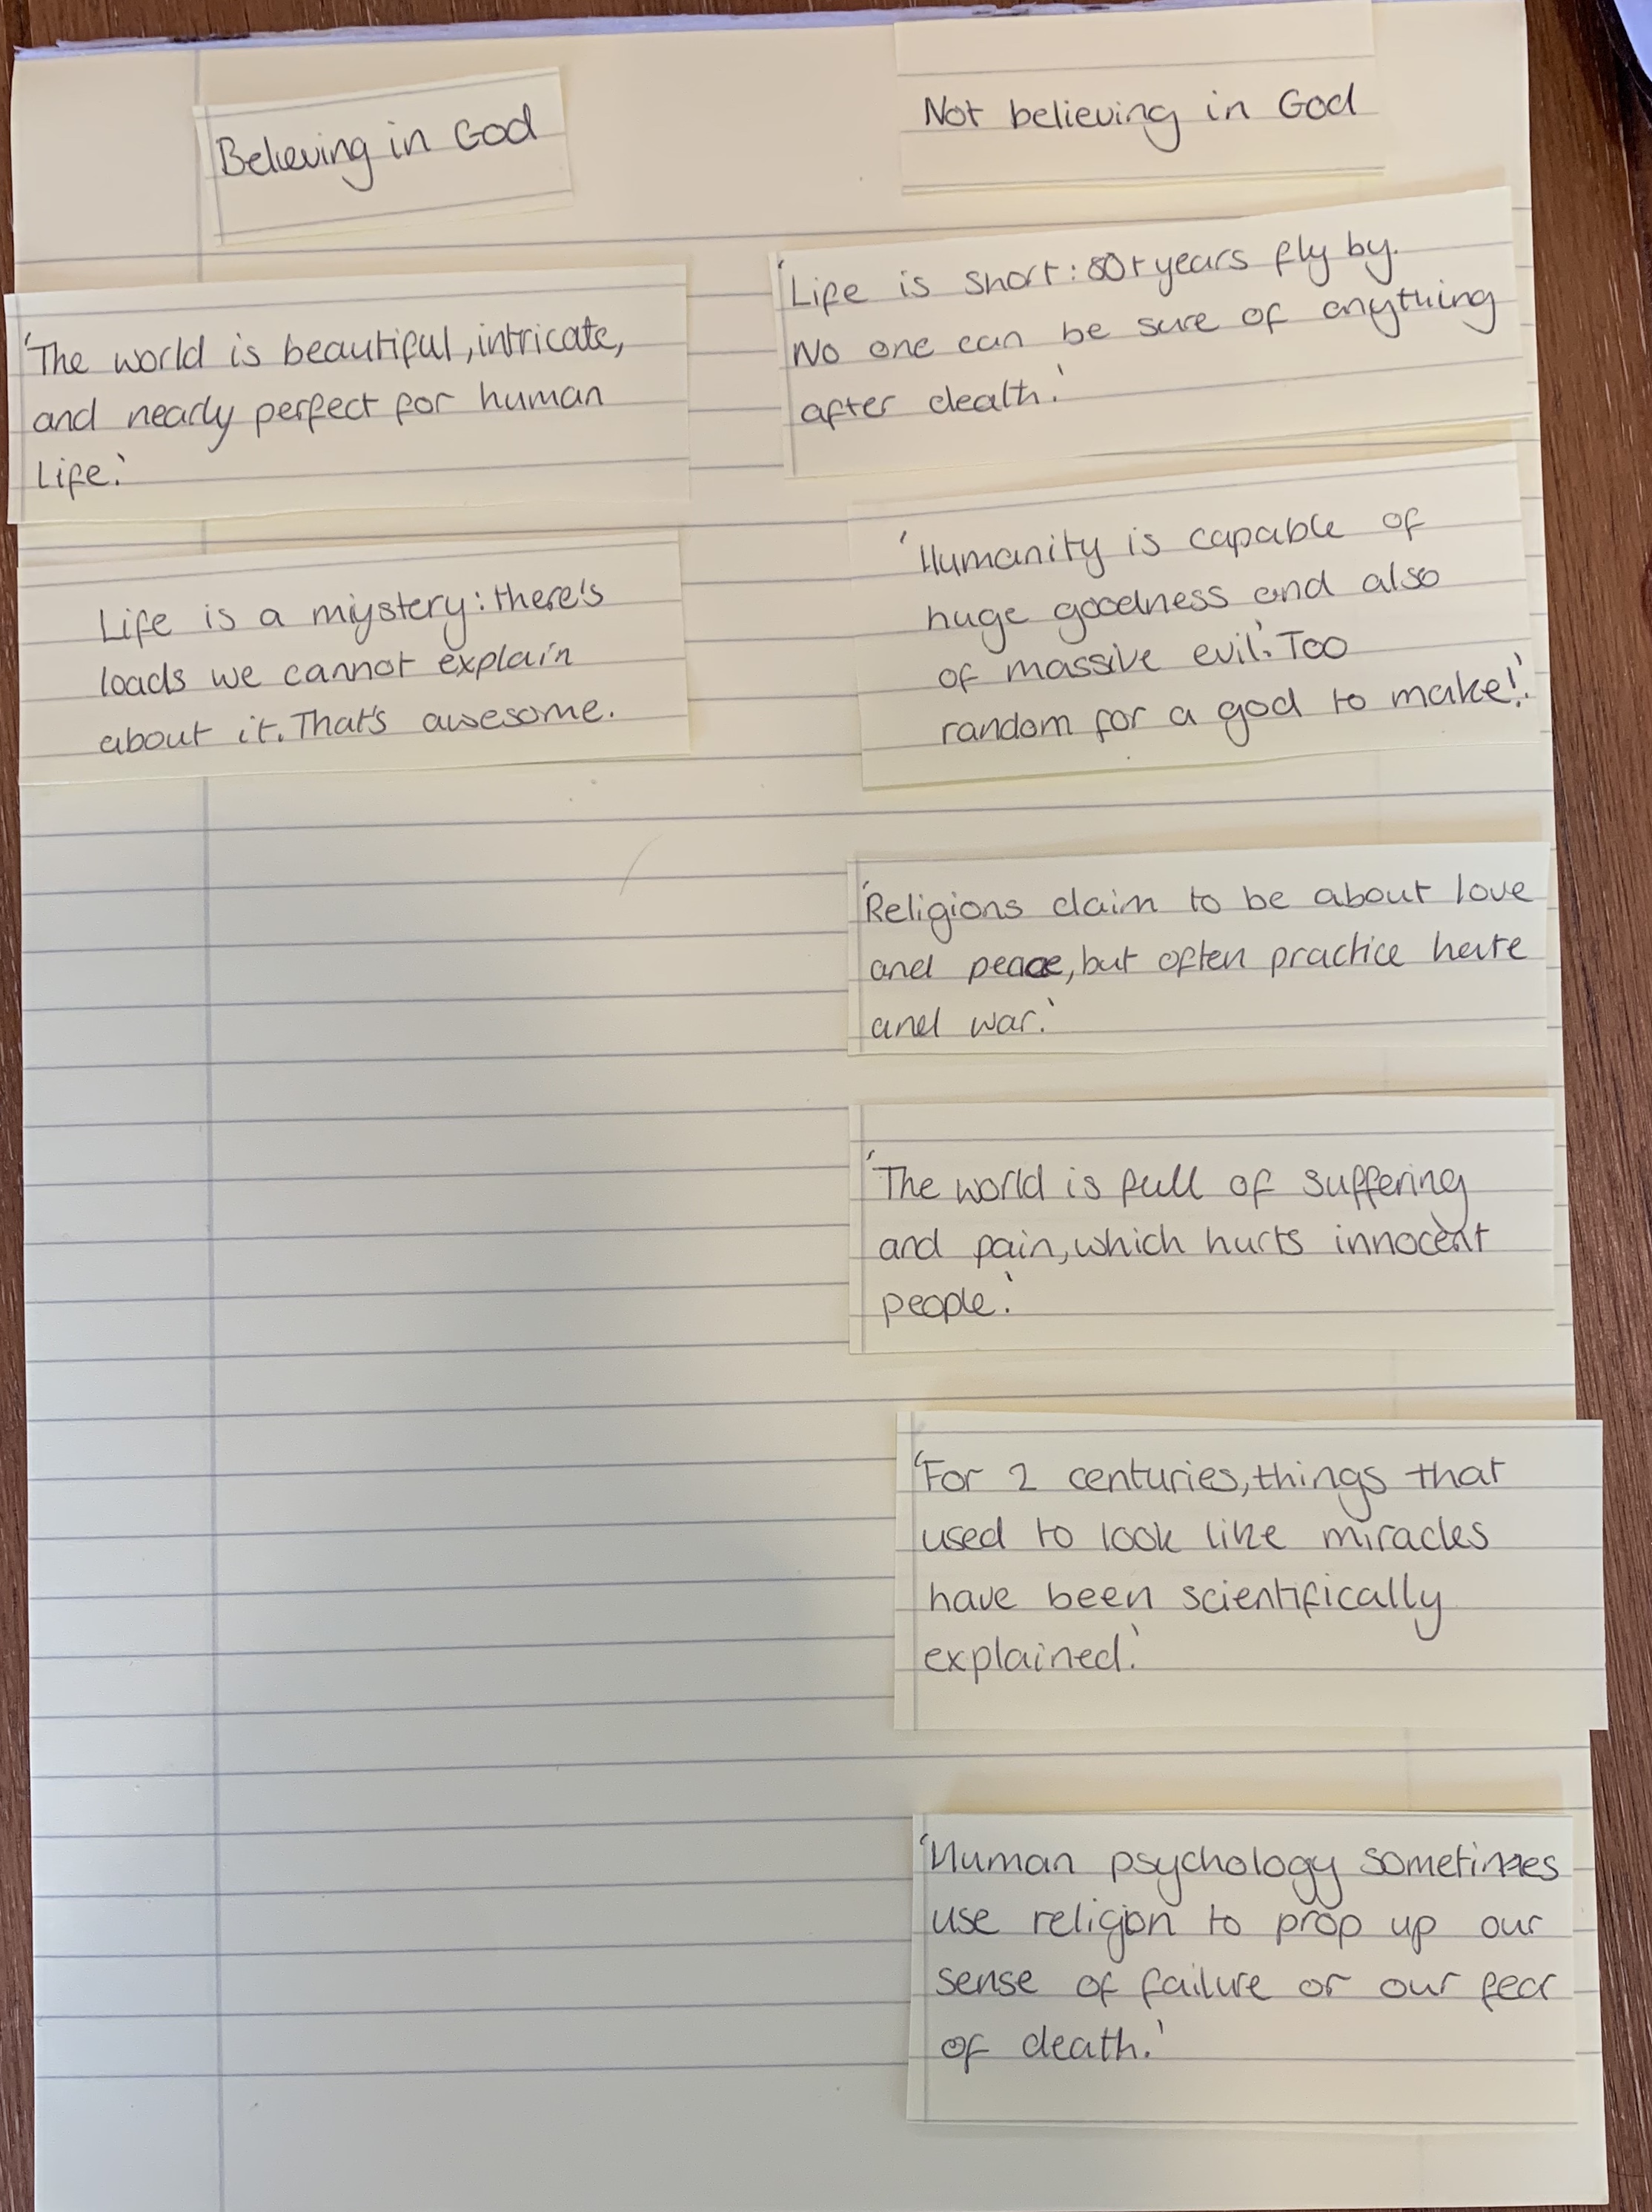 Believing in God
'The world is beautiful, intricate,
and nearly perfect for human
life.'
Life is a mystery: there's
loads we cannot explain
about it. That's awesome.
Not believing in God
'Life is short: 80+ years fly by.
No one can be sure of anything
after death.'
'Humanity is capable of
huge goodness and also
of massive evil.' Too
random for a god to make!'
'Religions claim to be about love
and peace, but often practice hate
and war.'
'The world is full of suffering
and pain, which hurts innocent
people.'
'For 2 centuries, things that
used to look like miracles
have been scientifically
explained.'
'Human psychology sometimes
use religion to prop up our
sense of failure or our fear
of death.'